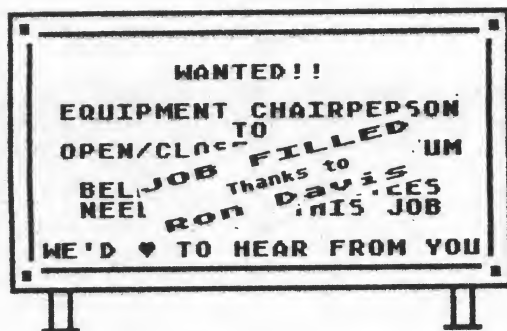 WANTED!!
EQUIPMENT CHAIRPERSON
TO
OPEN/CLOSE UM
JOB FILLED
Thanks to
Ron Davis
BEL CES
NEEL THIS JOB
WE'D ♥ TO HEAR FROM YOU